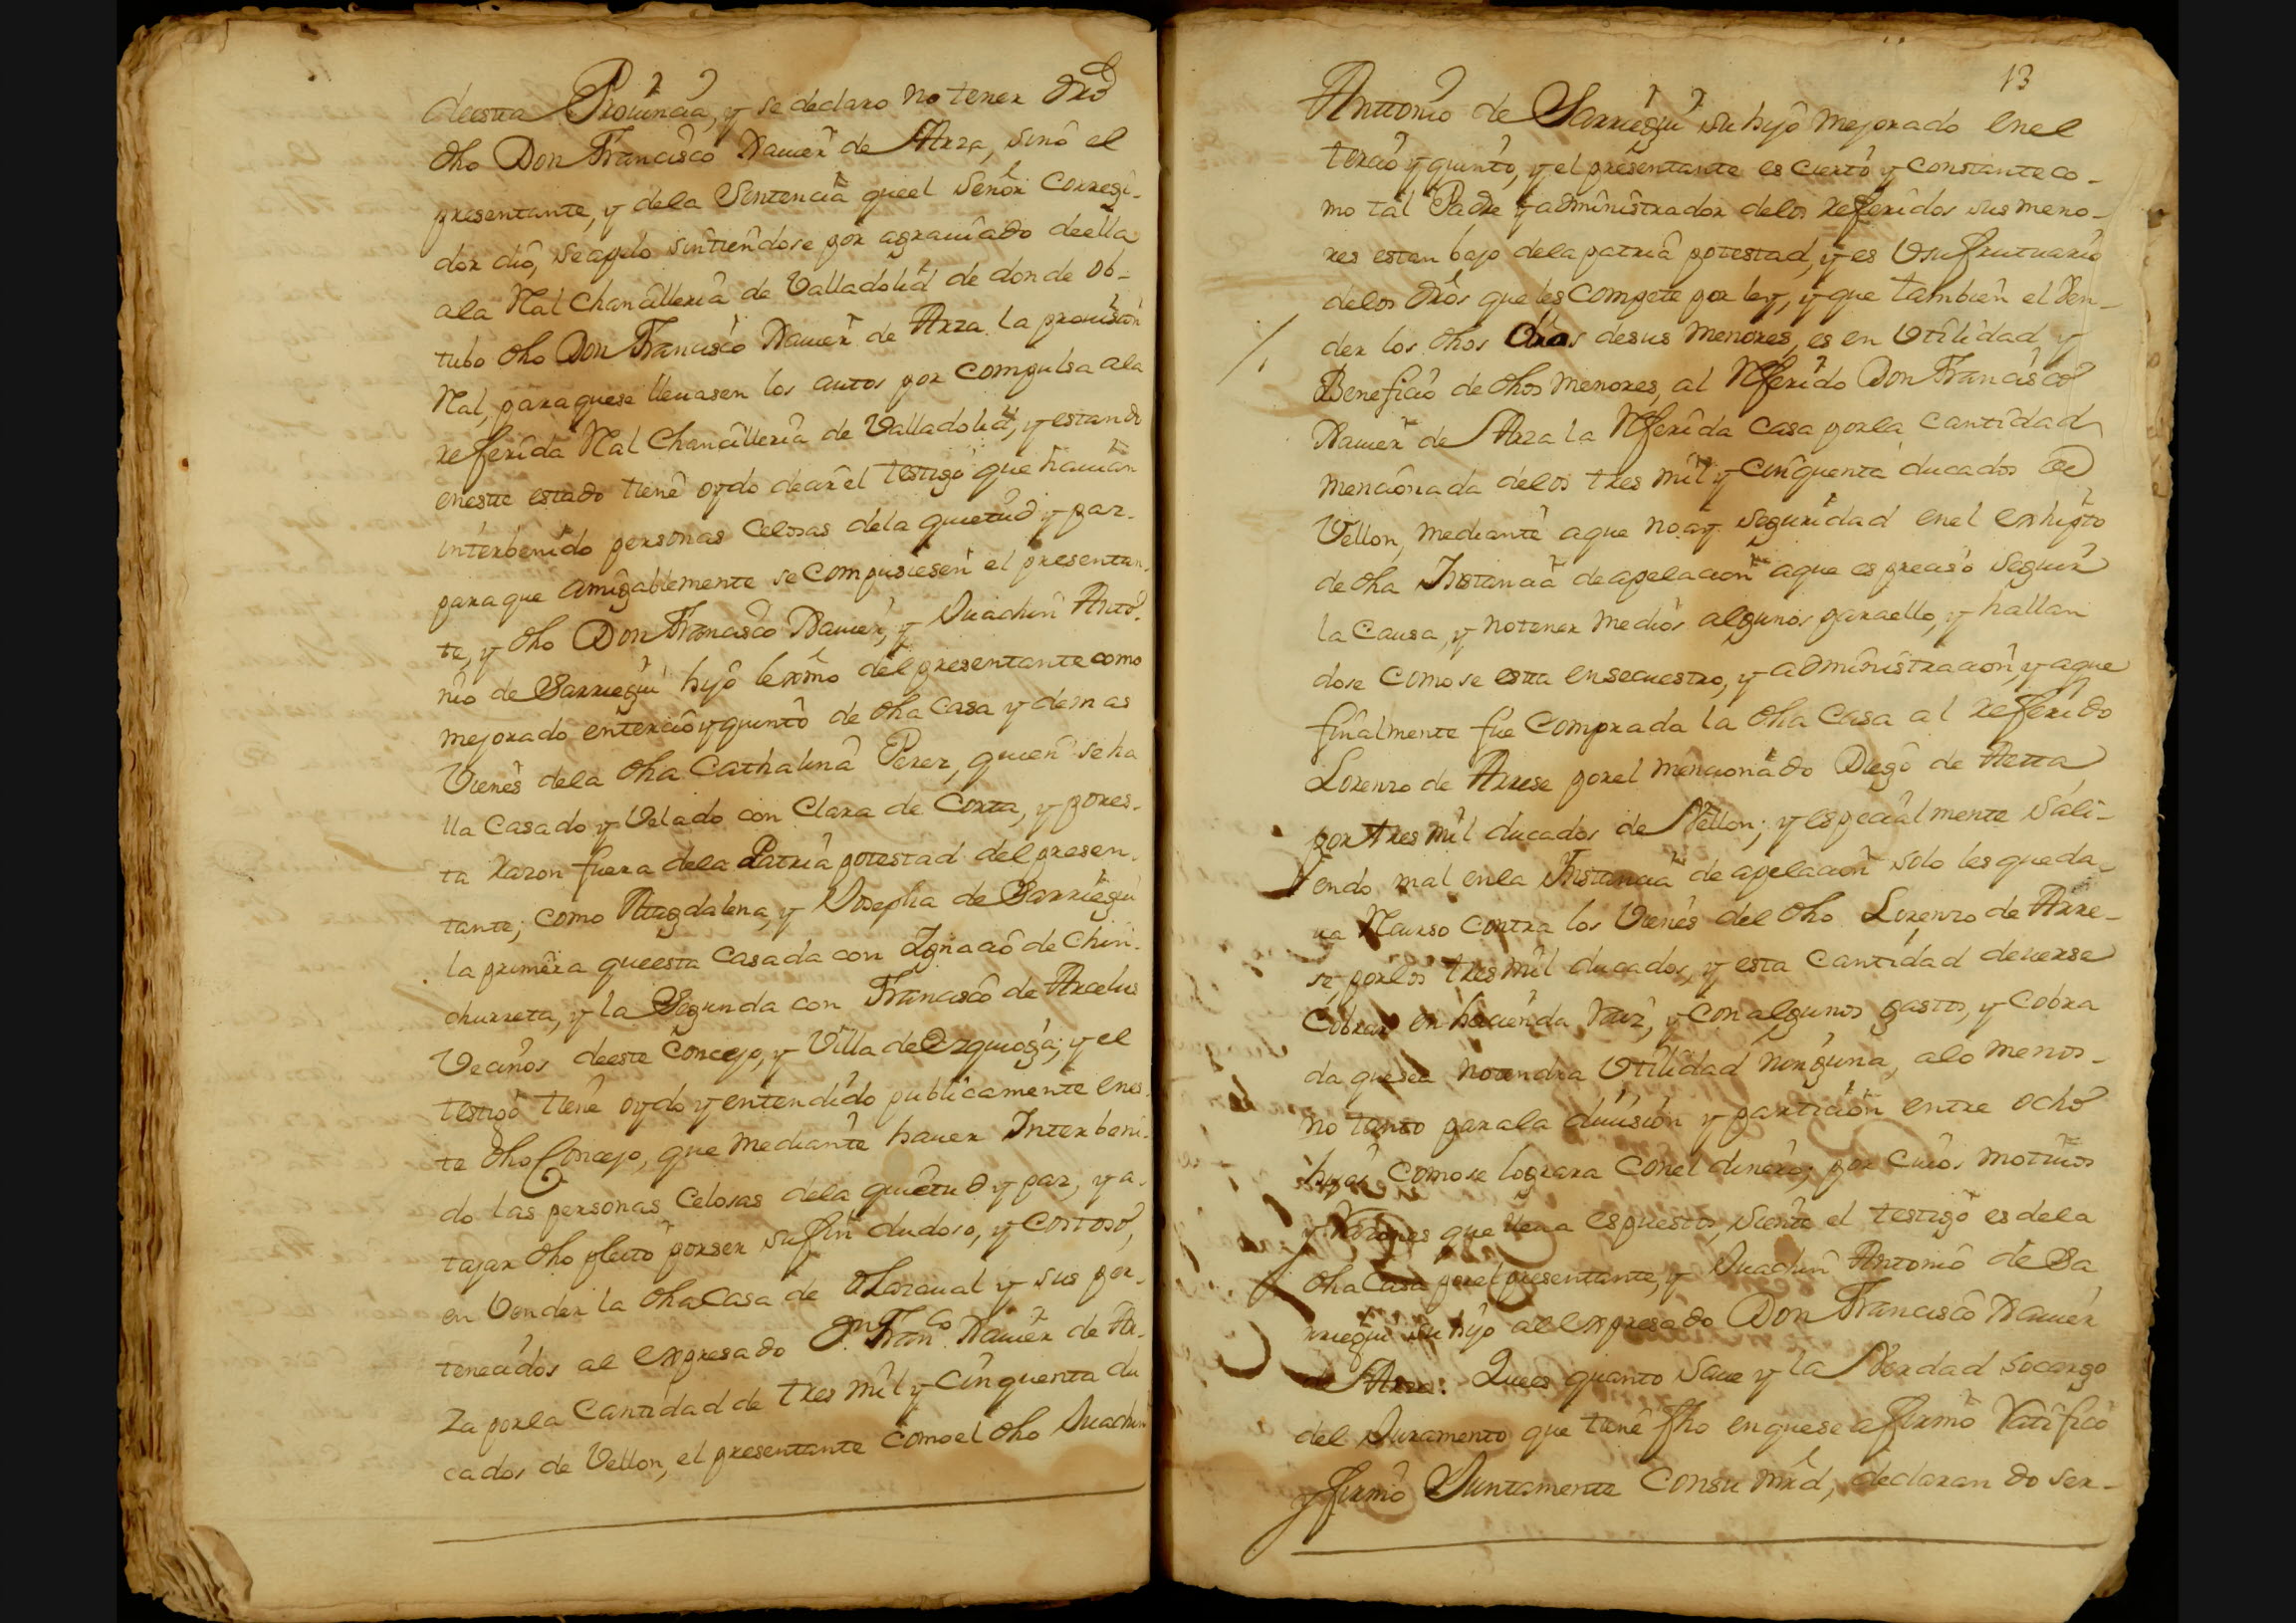 deesta Prouincia, y se declaro no tener dro
dho Don Francisco Xauier de Arza, sino el
presentante, y dela Sentencia queel Señor Corregi-
dor dio, se apelo sintiendose por agrauiado deella
ala Ral Chancilleria de Valladolid de donde ob-
tubo dho Don Francisco Xauier de Arza la prouision
Ral, paraquese lleuasen los autos por compulsa ala
referida Ral Chancilleria de Valladolid, y estando
eneste estado tiene oydo decir el testigo que hauian
interbenido personas celosas dela quietud y paz.
para que amigablemente se compusiesen el presentan-
te, y dho Don Francisco Xauier, y Juachin Anto-
nio de Sarriegui hijo lexmo del presentante como
mejorado entercio y quinto de dha Casa y demas
Vienes dela dha Cathalina Perez, quien se ha
lla Casado y Velado con Clara de Corta, y pores-
ta razon fuera dela Patria potestad del presen-
tante; como Magdalena, y Josepha de Sarriegui
la primera queesta Casada con Ignacio de Chin-
churreta, y la Segunda con Francisco de Arcelus
Vecinos deeste Concejo, y Villa de Ezquioga; y el
testigo tiene oydo y entendido publicamente enes-
te dho Concejo, que mediante hauer Interbeni-
do las personas Celosas dela quietud y paz, y a-
tajar dho pleito porser sufin dudoso, y Costoso,
en Vender la dha Casa de Olazaual y sus per-
tenecidos al expresado Dn. Franco. Xauier de Ar-
za porla Cantidad de tres mil y Cinquenta du
cados de Vellon, el presentante como el dho Juachin
13
Anttonio de Sarriegui su hijo mejorado enel
tercio y quinto, y el presentante es cierto y constante co-
mo tal Padre y administrador delos referidos sus meno-
res estan bajo dela patria potestad, y es Vsufrutuario
delos dros que les compete por ley, y que tambien el Ven-
der los dhos dros desus Menores, es en Vtilidad y
Beneficio de dhos menores, al Referido Don Francisco
Xauier de Arza la Referida Casa porla Cantidad
mencionada delos tres mil y cinquenta ducados de
Vellon, mediante a que no ay seguridad enel exhipto
de dha Instancia deapelacion aque es preciso seguir
la Causa, y notener medios algunos paraello, y hallan
dose como se esta ensecuestro, y administracion, y aque
finalmente fue Comprada la dha Casa al referido
Lorenzo de Arrese porel mencionado Diego de Aetta
por tres mil ducados de Vellon; y especialmente sali-
endo mal enla Instancia de apelacion solo les queda-
ua Recurso contra los Vienes del dho Lorenzo de Arre-
se, porlos tres mil ducados, y esta Cantidad deuerse
Cobrar en hacienda raiz, y con algunos gastos, y Cobra
da quesea notendra Vtilidad ninguna, alo menos-
no tanto parala diuision y particion entre ocho
hijos como se lograra conel dinero; por cuios motiuos
y Razones que lleua espuestos, siente el testigo es dela
dha Casa porel presentante, y Juachin Antonio de Sa
rriegui su hijo al expresado Don Francisco Xauier
de Arza: Quees quanto saue y la Verdad socargo
del Juramento que tiene fho enquese afirmo Ratifico
y firmo Juntamente Consu mrd, declarando ser-